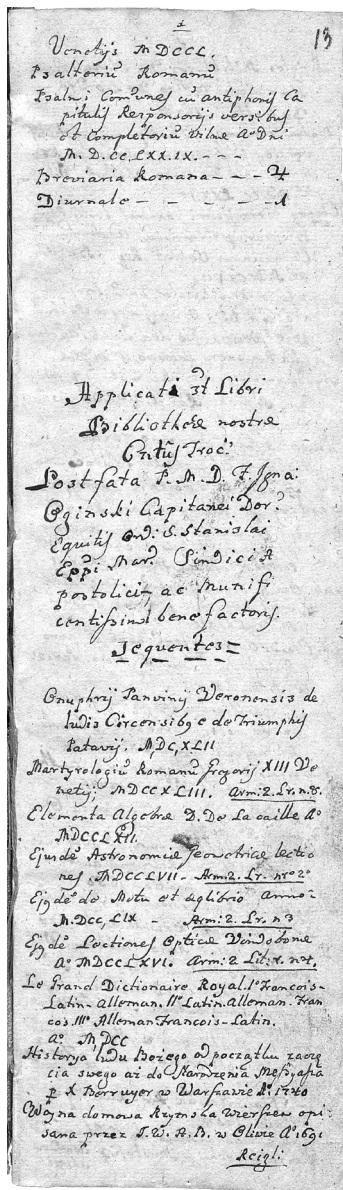 1
13
Venetijs MDCCL.
Psalteriū Romanū
Psalmi Comūnes cū antiphonis Ca
pitulis Responsorijs versibus
et Completoriū Vilnæ Ao Dni
M. D. CC. LXX. IX. - - -
Breviaria Romana - - - 4
Diurnale - - - - - 1
Applicati st Libri
Bibliothecæ nostræ
Cntūs Troc.
Post fata P. M. D. F. Igna:
Oginski Capitanei Dor.
Equitis Ord: S. Stanislai
Eppi Mar. Sindici A
postolici, ac Munifi
centissimi benefactoris.
Sequentes
Onuphrij Panvinij Veronensis de
ludis Circensib9 e de Triumphis
Patavij. MDC,XLII
Martyrologiū Romanū Gregorij XIII Ve
netijs MDCCXLIII. Arm: 2. Lr. n. 8.
Elementa Algebræ D. De La caille Ao
MDCCLXII.
Ejusdē Astronomiæ Geometricæ lectio
nes. MDCCLVII - Arm: 2. Lr. nro 2o
Ejgdē de Motu et æqlibrio Anno
M. DCC, LIX - Arm: 2. Lr. n 3
Ejgdē Lectiones Opticæ Vindobonæ
Ao MDCCLXVI. Arm: 2 Lit: r. n 4.
Le Grand Dictionaire Royal. Io Francois-
Latin-Alleman. IIo Latin. Alleman. Fran
cois. IIIo Alleman Francois-Latin.
Ao MDCC
Historya ludu Bożego od początku zaczę
cia swego aż do Narodzenia Messyasza
p X Berruyer w Warszawie Ro 1740
Woyna domowa Rzymska Wierszem opi
sana przez J. W. A. B. w Olivie Ao 1691
Rcigli